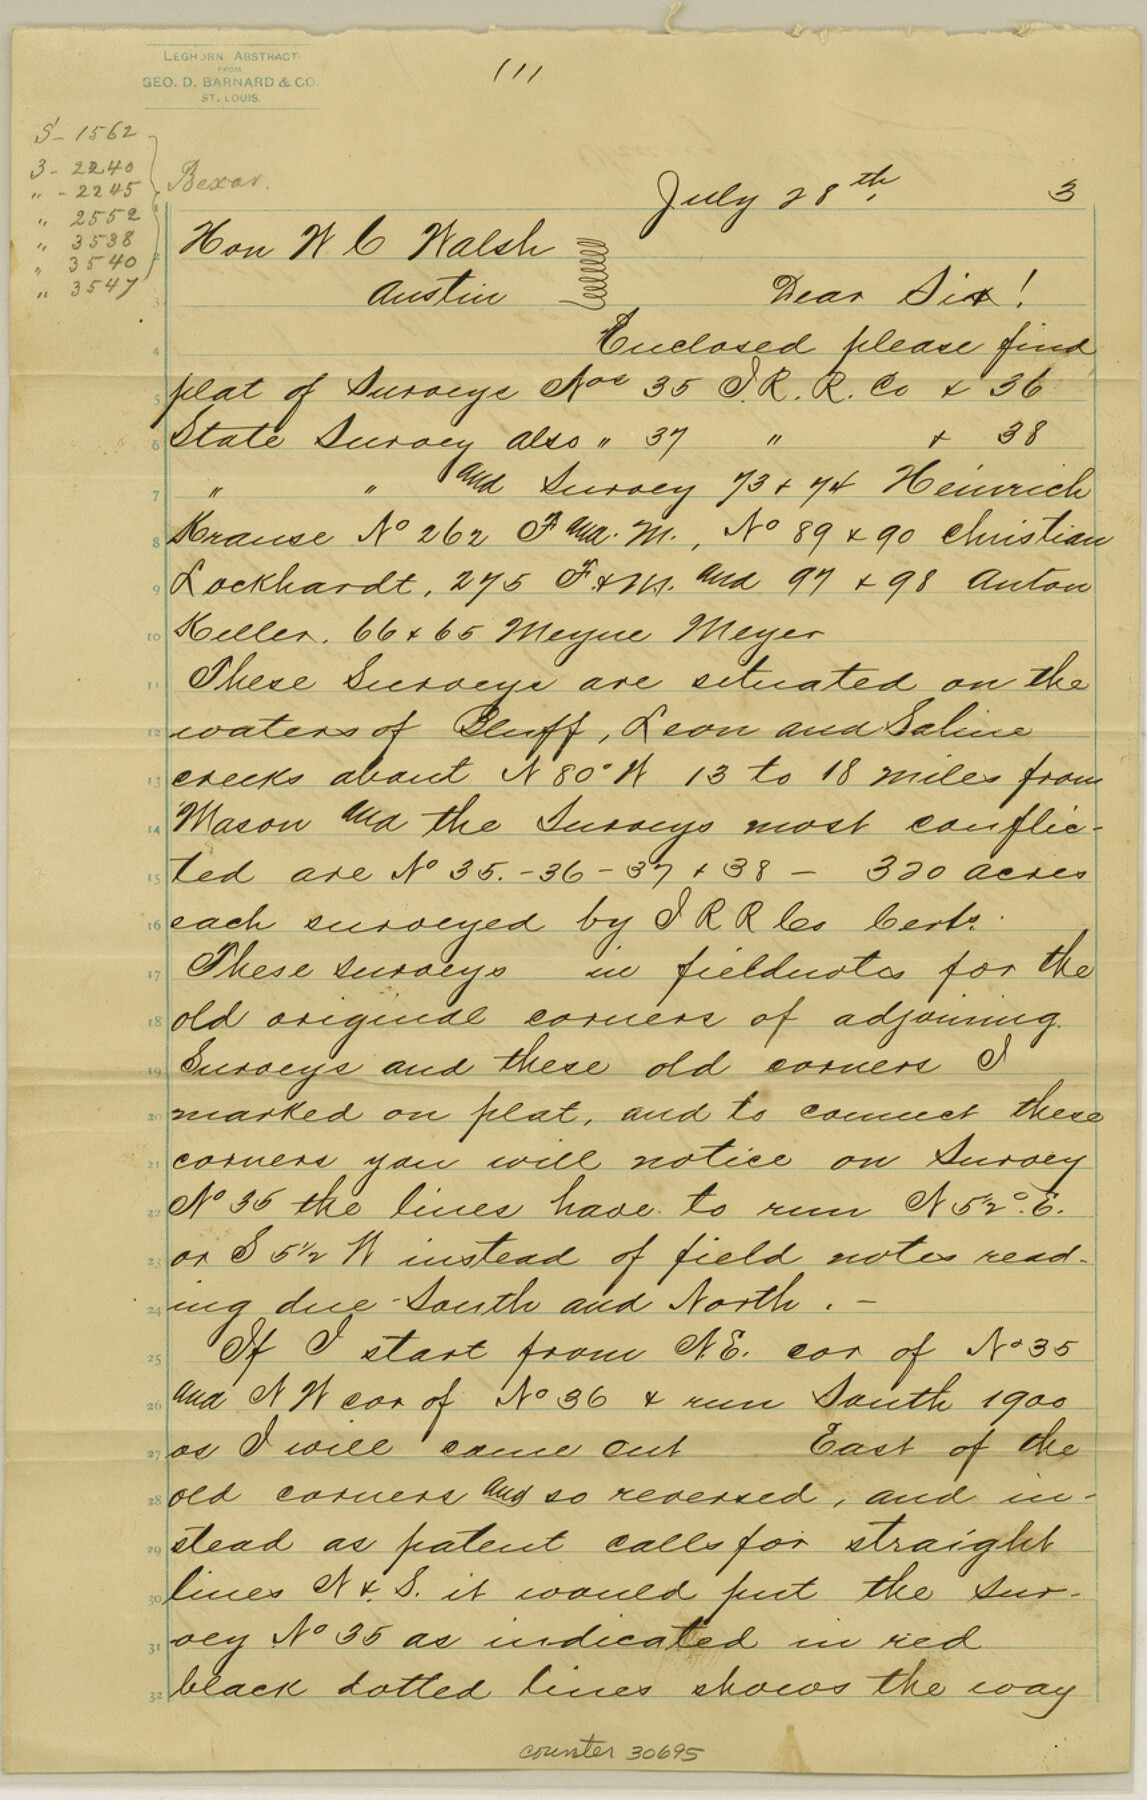 LEGHORN ABSTRACT
FROM
GEO. D. BARNARD & CO.
ST. LOUIS.
111
S - 1562
3 - 2240
" - 2245
" 2552
" 3538
" 3540
" 3547
Bexar.
July 28th. 3
Hon W C Walsh
Austin Dear Sir!
Enclosed please find
plat of Surveys Nos 35 I. R. R. Co & 36
State Survey also " 37 " & 38
" " and Survey 73 & 74 Heinrich
Krause No 262 F and M., No 89 & 90 Christian
Lockhardt, 275 F. & M. and 97 & 98 Anton
Keller. 66 & 65 Meyne Meyer
These Surveys are situated on the
waters of Bluff, Leon and Saline
creeks about N 80° W 13 to 18 miles from
Mason and the Surveys most conflic-
ted are No 35. - 36 - 37 & 38 - 320 acres
each surveyed by I R R Co Certs.
These surveys in fieldnotes for the
old original corners of adjoining
Surveys and these old corners I
marked on plat, and to connect these
corners you will notice on Survey
No 35 the lines have to run N 5½° E.
or S 5½ W instead of field notes read-
ing due South and North. -
If I start from N.E. cor of No 35
and N W cor of No 36 & run South 1900
os I will come out East of the
old corners and so reversed, and in-
stead as patent calls for straight
lines N & S. it would put the Sur-
vey No 35 as indicated in red
black dotted lines shows the way
1
2
3
4
5
6
7
8
9
10
11
12
13
14
15
16
17
18
19
20
21
22
23
24
25
26
27
28
29
30
31
32
counter 30695